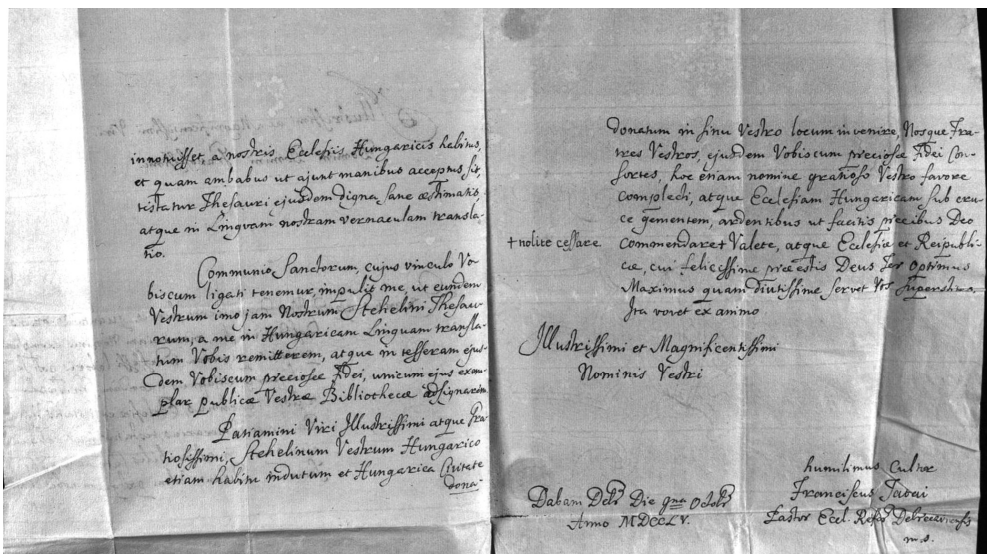 innotuisset a nostris Ecclesiis Hungaricis habitus,
et quam ambabus ut ajunt manibus acceptus sit,
testatur Thesauri ejusdem digna sane æstimatio,
atque in Lingvam nostram vernaculam transla-
tio.
Communio Sanctorum, cujus vinculo Vo-
biscum ligati tenemur, impulit me, ut eundem
Vestrum imo jam Nostrum Stehelini Thesau-
rum, a me in Hungaricam Linguam transla-
tum Vobis remitterem, atque in tesseram ejus-
dem Vobiscum preciosæ Fidei, unicum ejus exem-
plar publicæ Vestræ Bibliothecæ adsignarem.
Patiamini Viri Illustrissimi atque Gra-
tiosissimi, Stehelinum Vestrum Hungarico
etiam habitu indutum et Hungarica Civitate
dona-
donatum in sinu Vestro locum invenire, Nosque Fra-
tres Vestros, ejusdem Vobiscum preciosæ Fidei Con-
sortes, hoc etiam nomine gratioso Vestro favore
complecti, atque Ecclesiam Hungaricam sub cru-
ce gementem, ardentibus ut facitis precibus Deo
+ nolite cessare
commendare + Valete, atque Ecclesiæ et Reipubli-
cæ, cui felicissime præestis Deus Ter Optimus
Maximus quam diutissime servet Vos
Ita vovet ex animo
Illustrissimi et Magnificentissimi
Nominis Vestri
humilimus Cultor
Franciscus Tatai
Pastor Eccl. Refor. Debrecinensis
m.s.
Dabam Debr. Die 9na Octobr
Anno MDCCLV.